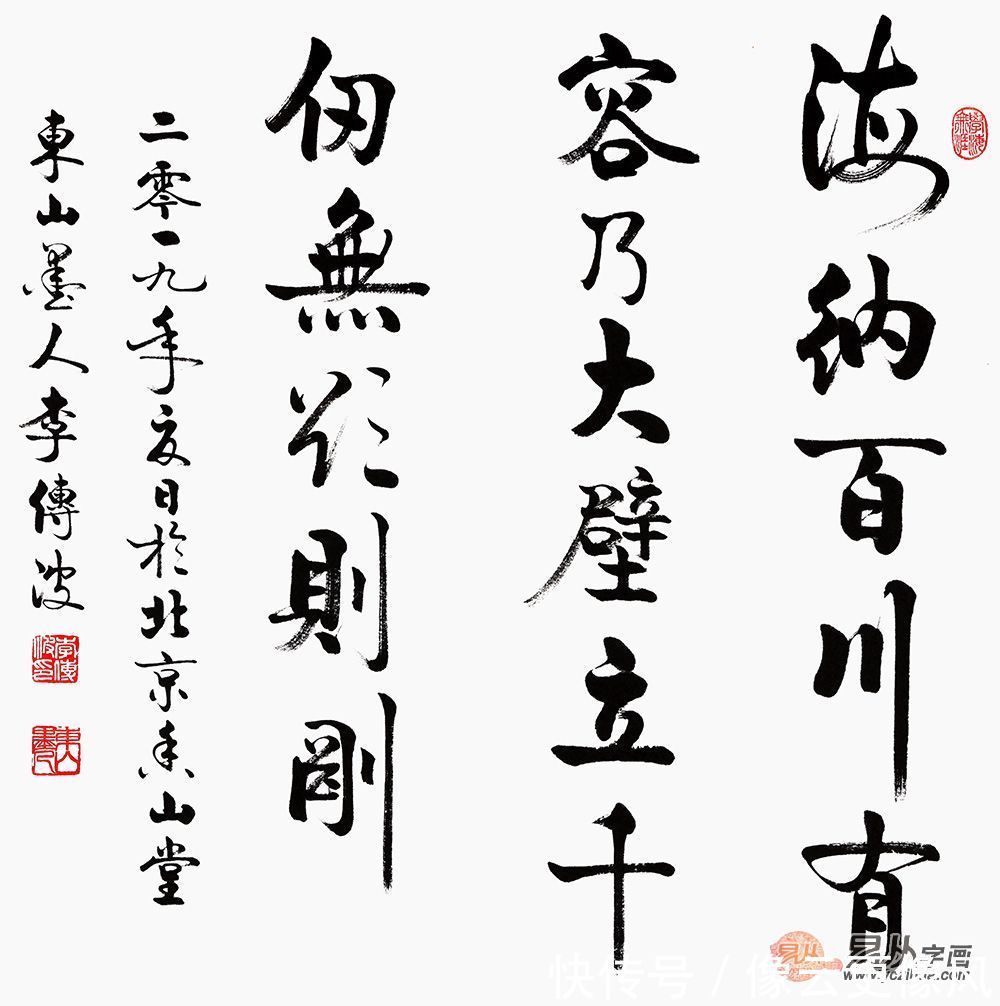 海納百川有
容乃大壁立千
仞無欲則剛
二零一九年夏日於北京香山堂
東山墨人李傳波
易从字画
www.yczihua.com
快传号 / 像云更像风